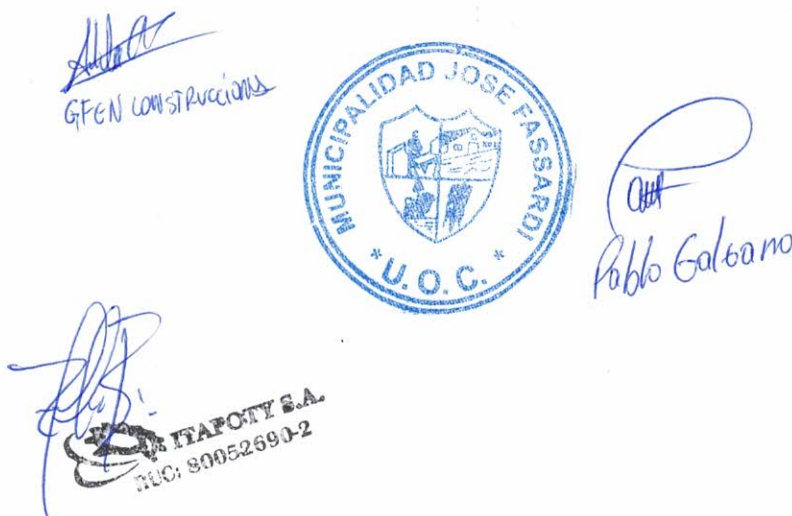 GFEN CONSTRUCCIONES
MUNICIPALIDAD JOSE FASSARDI
* U. O. C. *
Pablo Galeano
ITAPOTY S.A.
RUC: 80052690-2